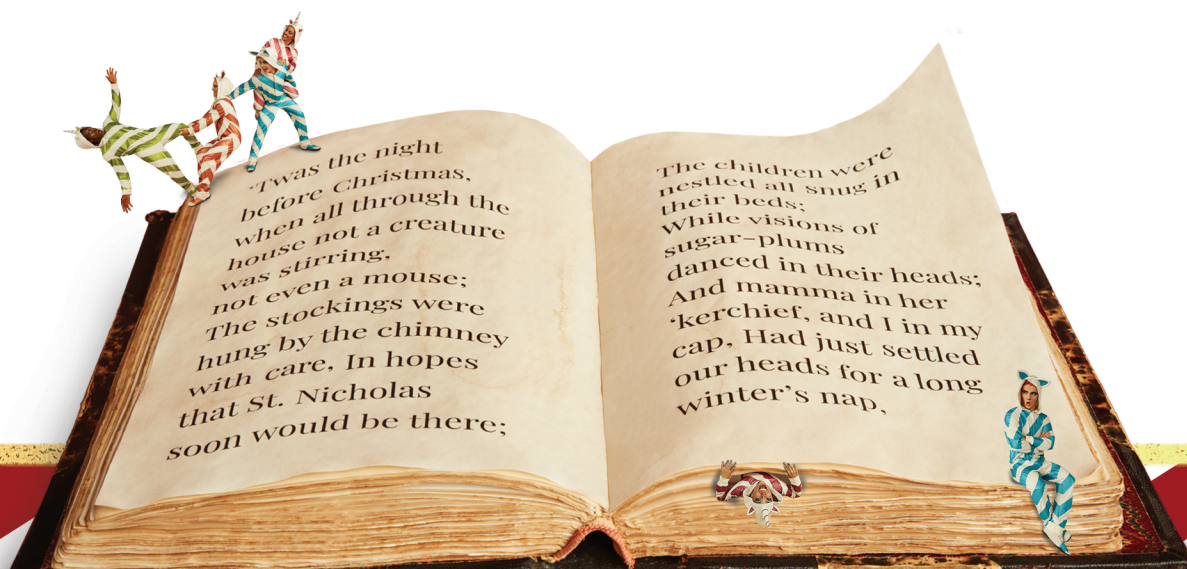 ‘Twas the night
before Christmas,
when all through the
house not a creature
was stirring,
not even a mouse;
The stockings were
hung by the chimney
with care, In hopes
that St. Nicholas
soon would be there;
The children were
nestled all snug in
their beds;
While visions of
sugar-plums
danced in their heads;
And mamma in her
‘kerchief, and I in my
cap, Had just settled
our heads for a long
winter’s nap,